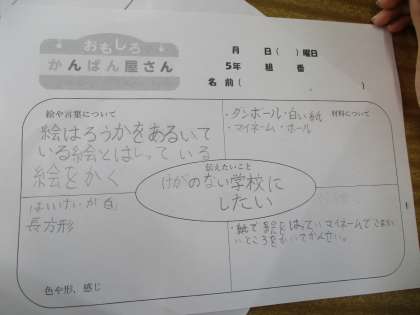 おもしろ
かんばん屋さん
月　日（　）曜日
５年　組　番
名　前（　　　）
絵や言葉について
絵はろうかをあるいて
いる絵とはしっている
絵をかく
・ダンボール・白い紙
材料について
・マイネーム・ボール
伝えたいこと
けがのない学校に
したい
はいけいが白
長方形
色や形、感じ
・紙で絵をはっていマイネームで
いところを